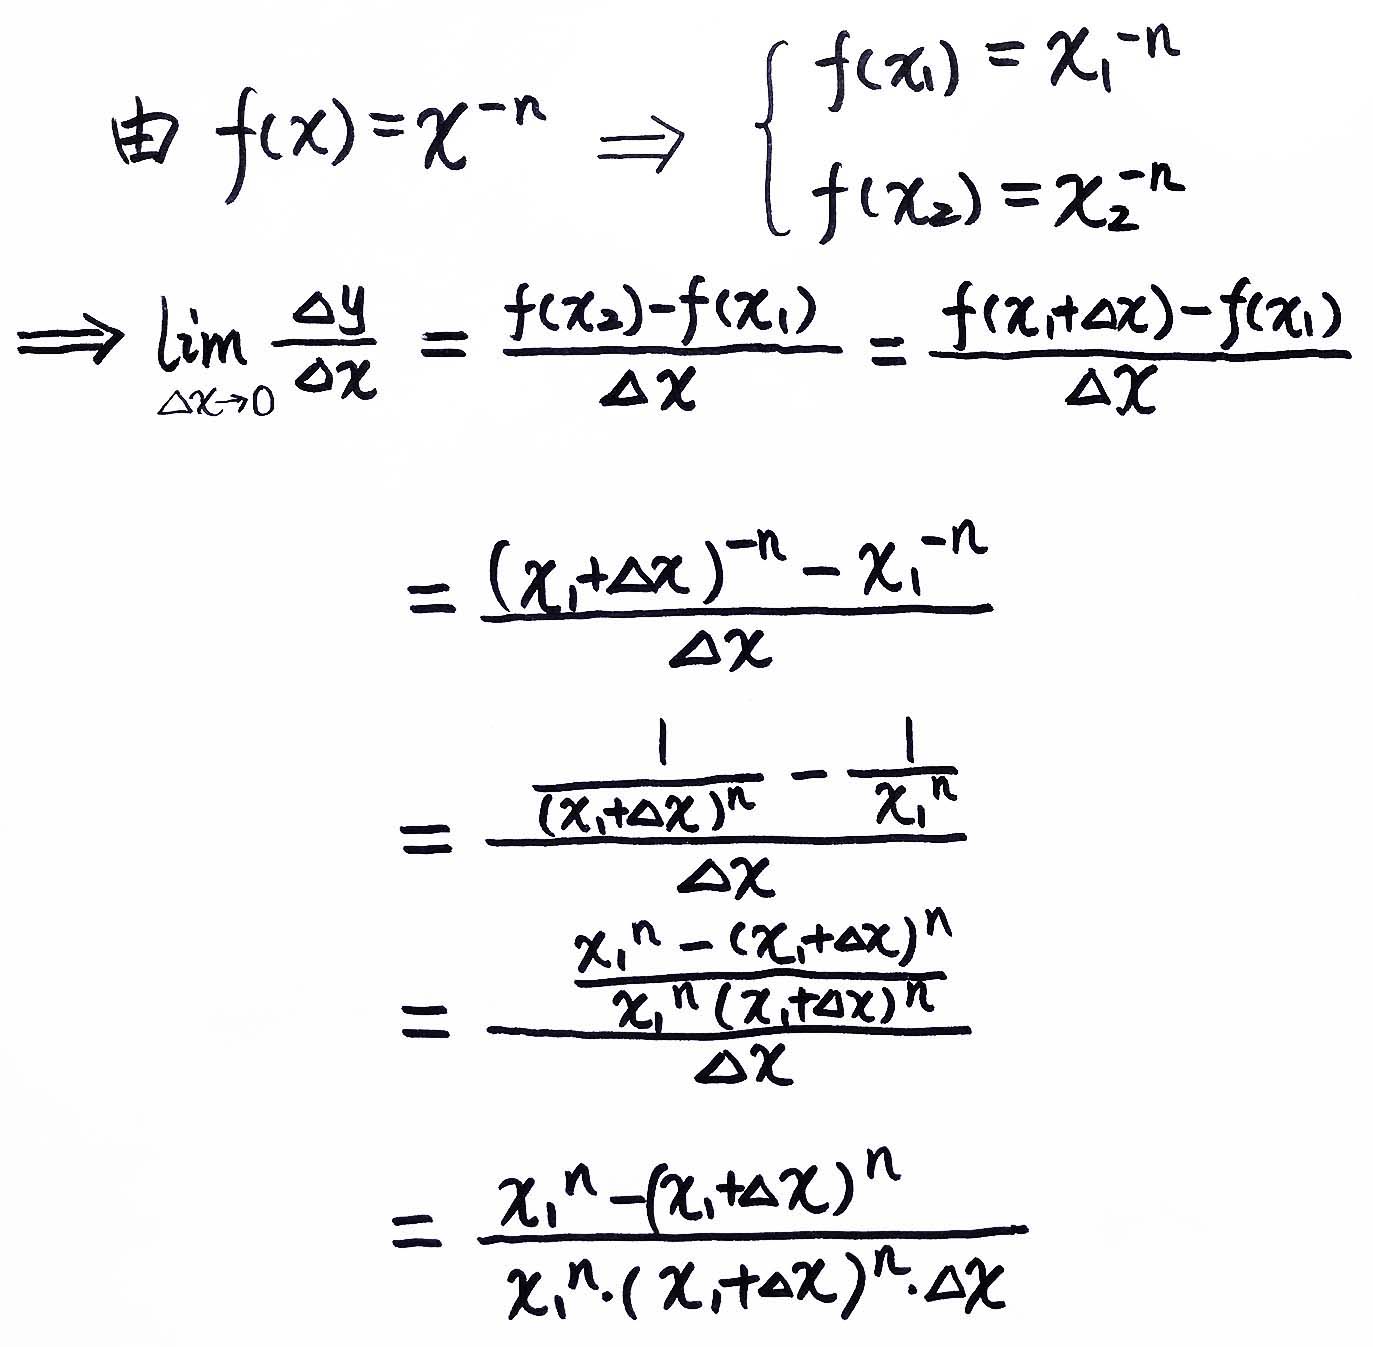 由 f(x)=x^{-n} ⇒ { f(x₁) = x₁^{-n}
f(x₂) = x₂^{-n}
⇒ lim_{Δx→0} \frac{Δy}{Δx} = \frac{f(x₂)-f(x₁)}{Δx} = \frac{f(x₁+Δx)-f(x₁)}{Δx}
= \frac{(x₁+Δx)^{-n} - x₁^{-n}}{Δx}
= \frac{\frac{1}{(x₁+Δx)^n} - \frac{1}{x₁^n}}{Δx}
= \frac{\frac{x₁^n - (x₁+Δx)^n}{x₁^n (x₁+Δx)^n}}{Δx}
= \frac{x₁^n - (x₁+Δx)^n}{x₁^n·(x₁+Δx)^n·Δx}